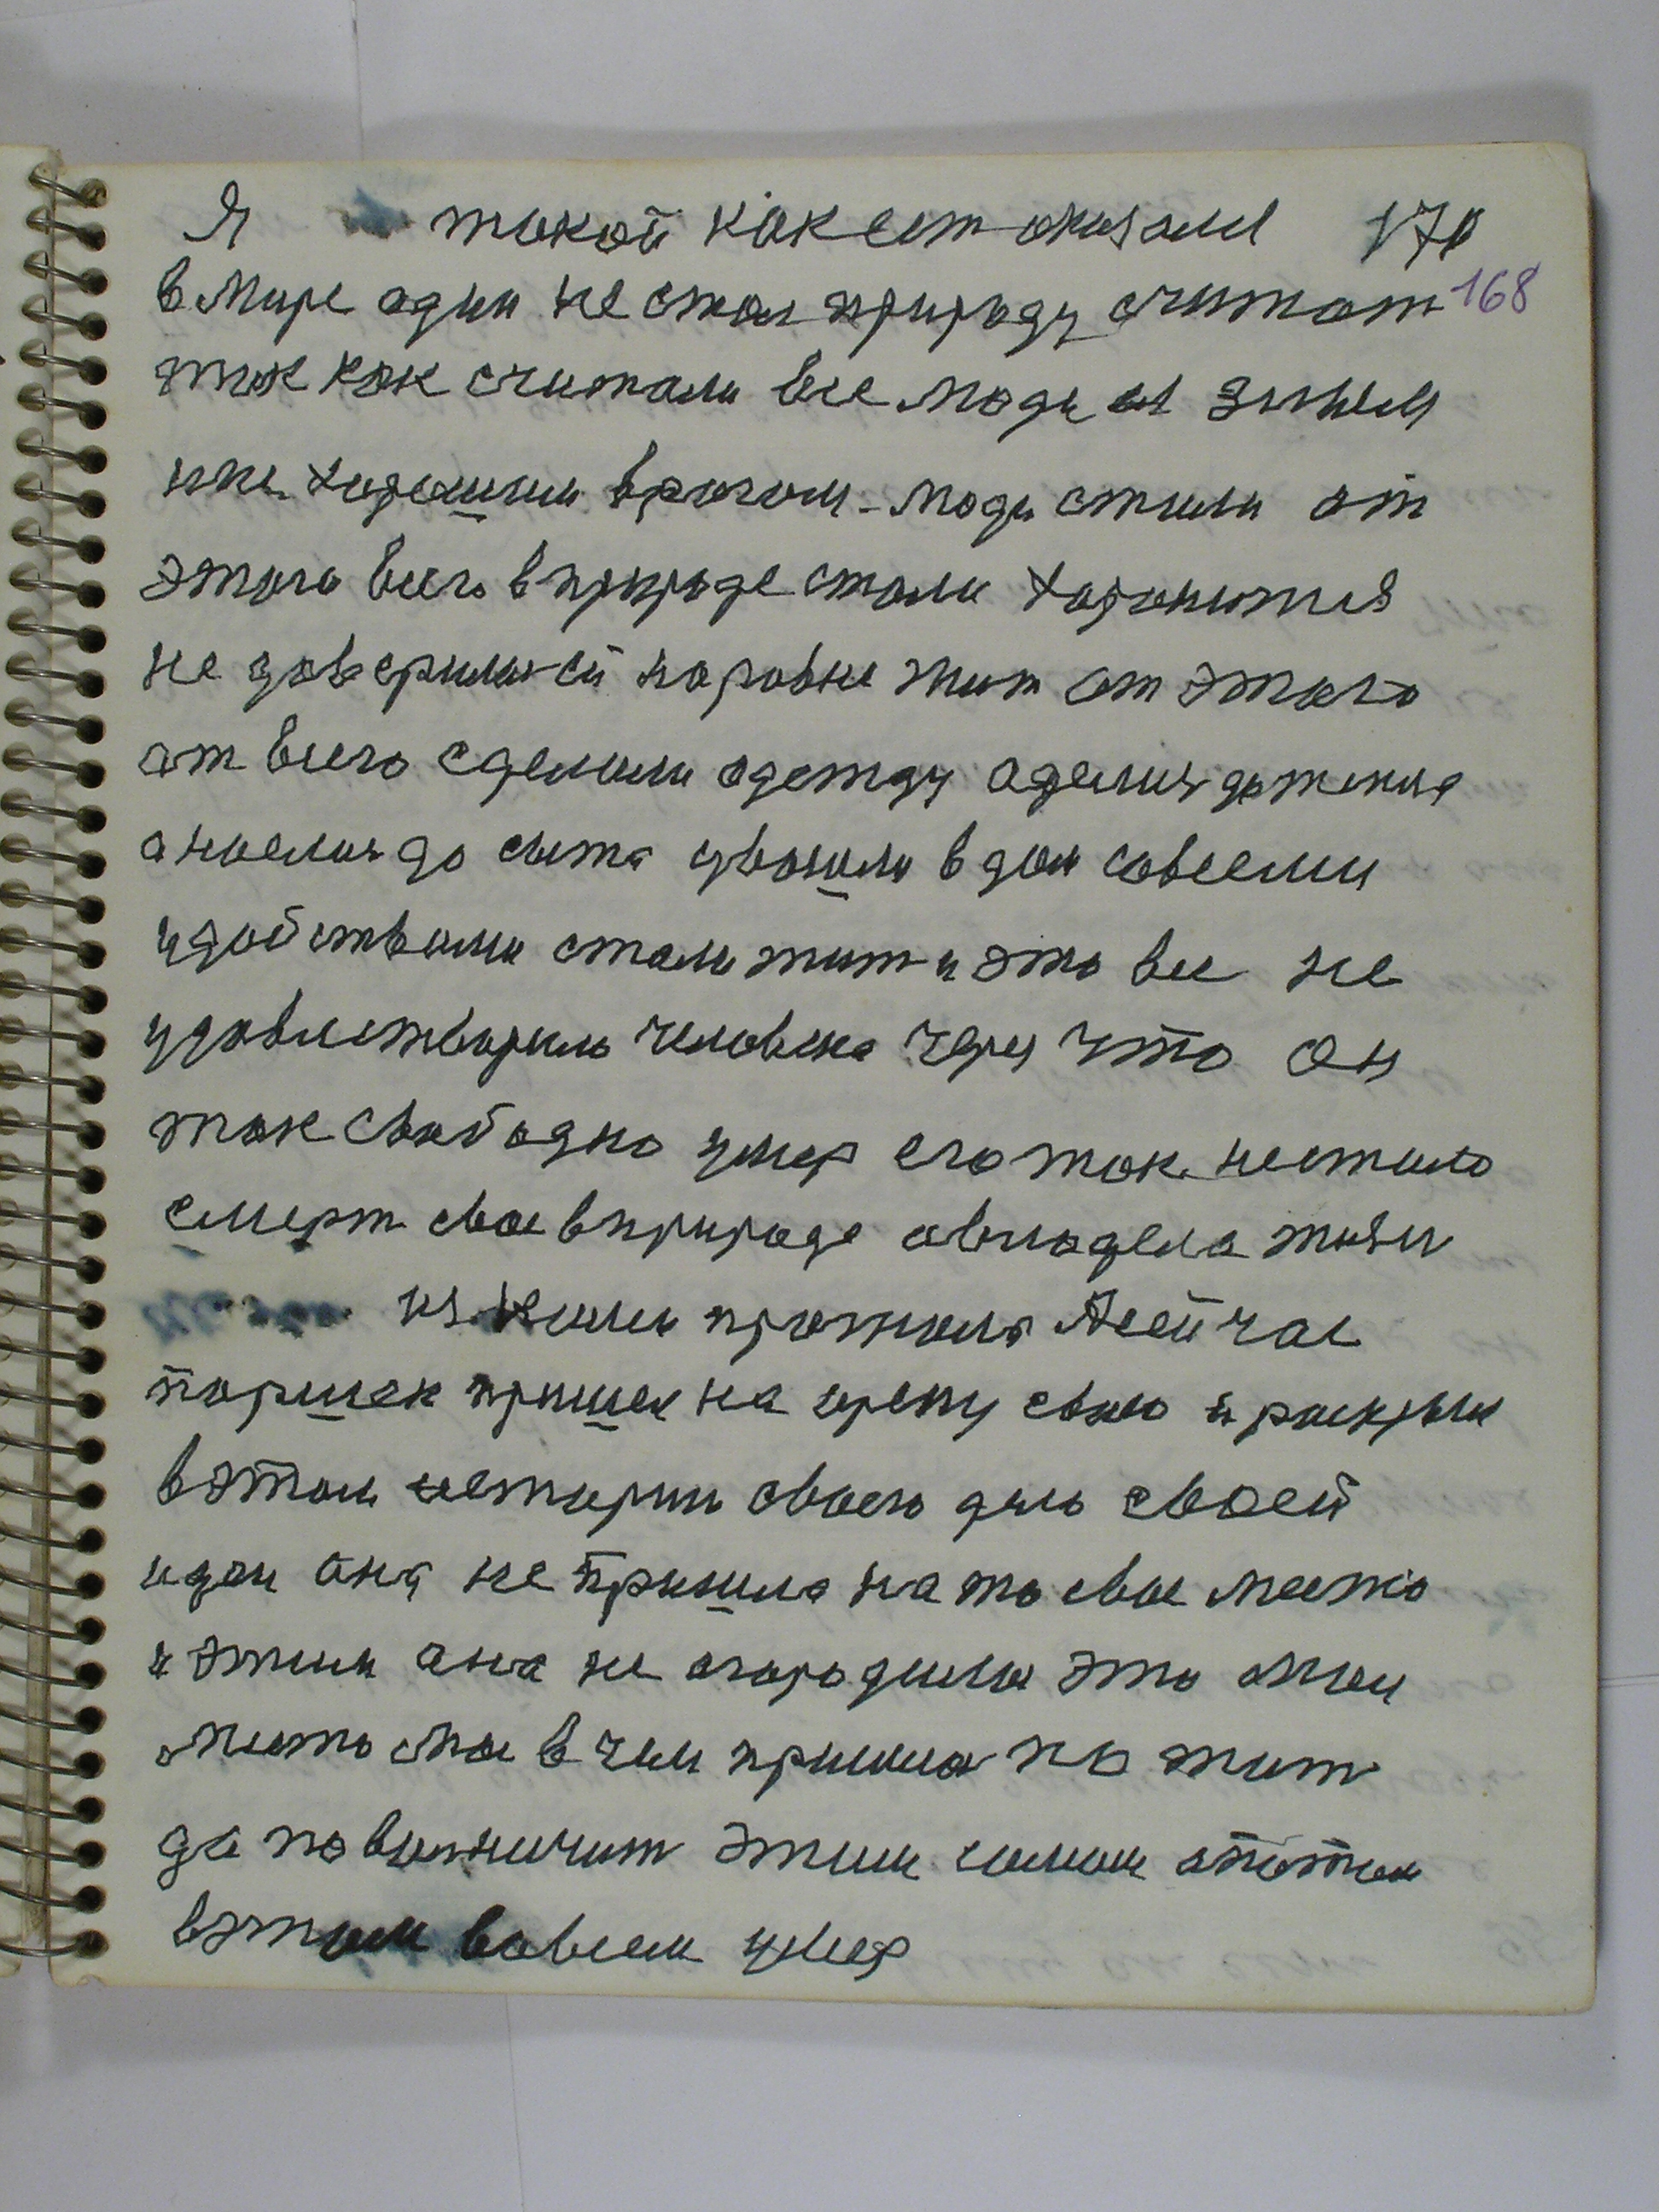 Я такой как ест оказался 170
в мире один не стал природу считат 168
так как считали все люди ее зжнем
нехорошим врагом. люди стали от
этого всего в природе стали хоронится
не доверилис ей наровне жит от этого
от всего сделали одежду оделис до тепла
а наелис до сыта у вошли в дом совсеми
удобствами стали жит и это все не
удовлетворило человека через что он
так свободно умер его так нестало
смерт свое в природе овладела жизн
из ними прожила А сейчас
паршек пришел на арену свою и раскрыл
в этом истории своего дело своей
идеи она не пришла на то свое место
и этим она не огородила это мои
место мое в чем пришлос по жит
да по вольничит этим самим а потом
в этом вовсем умер